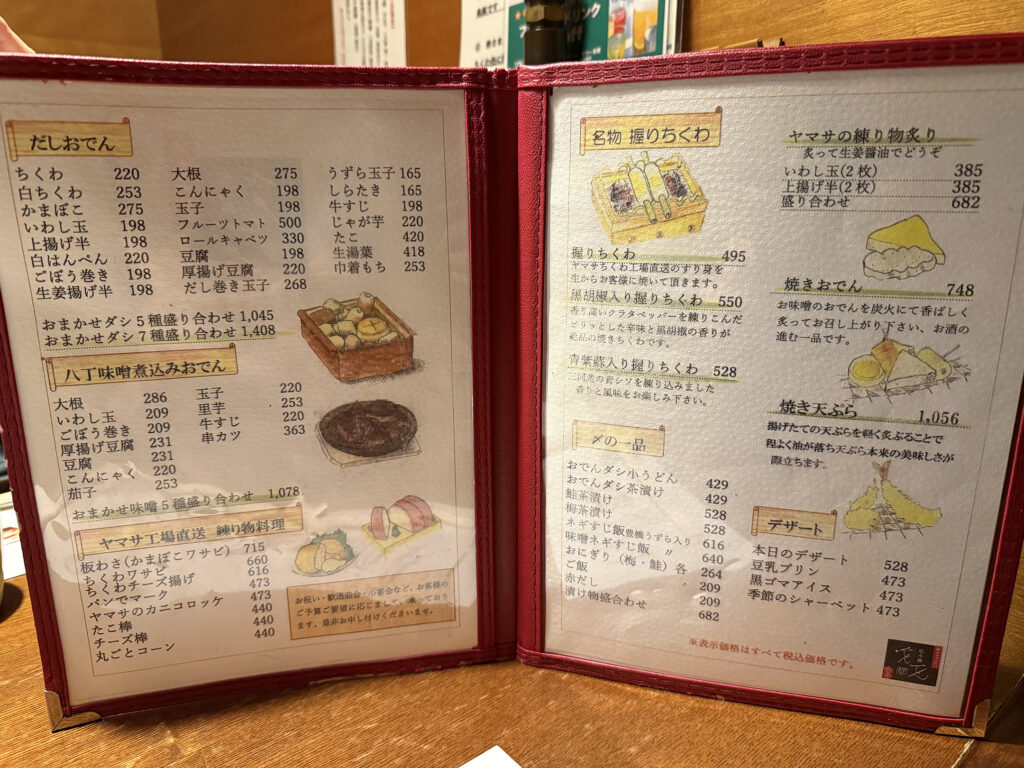 だしおでん
ちくわ 220
白ちくわ 253
かまぼこ 275
いわし玉 198
上揚げ半 198
白はんぺん 220
ごぼう巻き 198
生姜揚げ半 198
大根 275
こんにゃく 198
玉子 198
フルーツトマト 500
ロールキャベツ 330
豆腐 198
厚揚げ豆腐 220
だし巻き玉子 268
うずら玉子 165
しらたき 165
牛すじ 198
じゃが芋 220
たこ 420
生湯葉 418
巾着もち 253
おまかせダシ5種盛り合わせ 1,045
おまかせダシ7種盛り合わせ 1,408
八丁味噌煮込みおでん
大根 286
いわし玉 209
ごぼう巻き 209
厚揚げ豆腐 231
豆腐 231
こんにゃく 220
茄子 253
玉子 220
里芋 253
牛すじ 220
串カツ 363
おまかせ味噌5種盛り合わせ 1,078
ヤマサ工場直送 練り物料理
板わさ(かまぼこワサビ) 715
ちくわワサビ 660
ちくわチーズ揚げ 616
パンでマーク 473
ヤマサのカニコロッケ 473
たこ棒 440
チーズ棒 440
丸ごとコーン 440
お祝い・歓送迎会・小宴会など、お客様の
ご予算ご要望に応じまして、承っており
ます。是非お申し付けくださいませ。
名物 握りちくわ
握りちくわ 495
ヤマサちくわ工場直送のすり身を
生からお客様に焼いて頂きます。
黒胡椒入り握りちくわ 550
香り高いクラタペッパーを練りこんだ
ピリッとした辛味と黒胡椒の香りが
絶品の焼きちくわです。
青紫蘇入り握りちくわ 528
三河産の青シソを練り込みました
香りと風味をお楽しみ下さい。
〆の一品
おでんダシ小うどん 429
おでんダシ茶漬け 429
鮭茶漬け 528
梅茶漬け 528
ネギすじ飯豊橋うずら入り 616
味噌ネギすじ飯 〃 640
おにぎり(梅・鮭)各 264
ご飯 209
赤だし 209
漬け物盛合わせ 682
ヤマサの練り物炙り
炙って生姜醤油でどうぞ
いわし玉(2枚) 385
上揚げ半(2枚) 385
盛り合わせ 682
焼きおでん 748
お味噌のおでんを炭火にて香ばしく
炙ってお召し上がり下さい、お酒の
進む一品です。
焼き天ぷら 1,056
揚げたての天ぷらを軽く炙ることで
程よく油が落ち天ぷら本来の美味しさが
際立ちます。
デザート
本日のデザート 528
豆乳プリン 473
黒ゴマアイス 473
季節のシャーベット 473
※表示価格はすべて税込価格です。